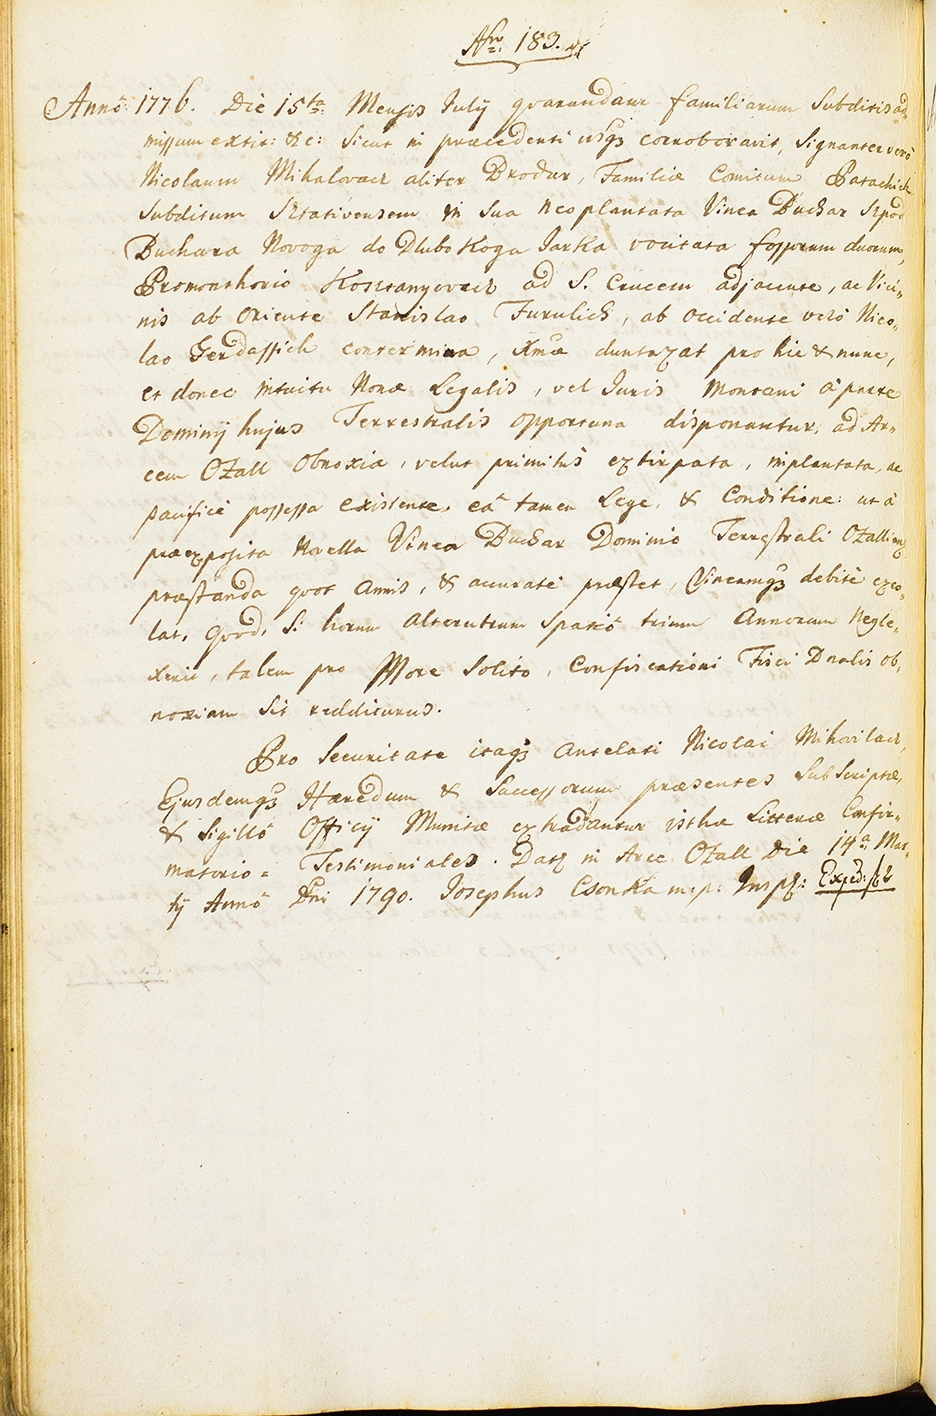 Nro. 183.
Anno 1776. Die 15ta Mensis July quarundam familiarum Subditis ad-
missum extit: &c: Sicut in praecedenti usq3 corroboravit, Signanter verò
Nicolaum Mihalovacz aliter Brodar, Familiae Comitum Patachich
Subditum Sztativensem in Sua neoplantata Vinea Buchar Szpod
Buchara Novoga do Dlubokoga Jarka vocitata fossorum duorum,
Promonthorio Kosztanyevacz ad S. Crucem adjacente, ac Vici-
nis ab Oriente Stanislao Furulich, ab occidente verò Nico-
lao Gerdassich contermina, Xmae duntaxat pro hic & nunc,
et donec intuitu Nonae Legalis, vel Juris Montani à parte
Dominij hujus Terrestralis opportuna disponantur, ad Ar-
cem Ozall Obnoxia, velut primitùs extirpata, inplantata, ac
pacificè possessa existente, eâ tamen Lege, & Conditione: ut à
praexposita Novella Vinea Buchar Dominio Terrestrali Ozalliensi
praestanda quot annis, & accuratè praestet, Vineamq3 debitè exco-
lat, Quod, Si horum alterutrum Spatiô trium Annorum Negle-
xerit, talem pro More Solito, Confiscationi Fisci Dnalis ob-
noxiam Sit redditurus.
Pro Securitate itaq3 Antelati Nicolai Mihovilacz,
Ejusdemq3 Haeredum & Successorum praesentes SubScriptae,
& Sigillô Officij Munitae extradantur isthae Litterae Confir-
matorio = Testimoniales. Datt in Arce Ozall Die 14a Mar-
tij Annô Dni 1790. Josephus Csonka mp: Insp: Exped: